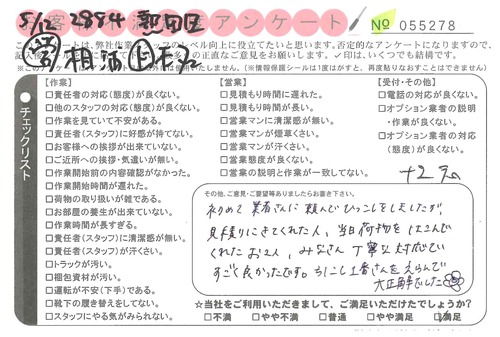 5/12 2984 熱田区
お客様不満足度アンケート
No 055278
このアンケートは、弊社作業スタッフのレベル向上に役立てたいと思います。否定的なアンケートになりますので、
多くの正直なご意見をお願いします。✓印は、いくつでも結構です。
使用いたしません。(※情報保護シールは1度はがすと、再度貼りなおすことはできません)
●チェックリスト
【作業】
□責任者の対応(態度)が良くない。
□他のスタッフの対応(態度)が良くない。
□作業を見ていて不安がある。
□責任者(スタッフ)に好感が持てない。
□お客様への挨拶が出来ていない。
□ご近所への挨拶・気遣いが無い。
□作業開始前の内容確認がなかった。
□作業開始時間が遅れた。
□荷物の取り扱いが雑である。
□お部屋の養生が出来ていない。
□作業時間が長すぎる。
□責任者(スタッフ)に清潔感が無い。
□責任者(スタッフ)が汗くさい。
□トラックが汚い。
□梱包資材が汚い。
□運転が不安(下手)である。
□靴下の履き替えをしてない。
□スタッフにやる気がみられない。
【営業】
□見積もり時間に遅れた。
□見積もり時間が長い。
□営業マンに清潔感が無い。
□営業マンが煙草くさい。
□営業マンが汗くさい。
□営業態度が良くない。
□営業の説明と作業が一致してない。
【受付・その他】
□電話の対応が良くない。
□オプション業者の説明
・作業が良くない。
□オプション業者の対応
(態度)が良くない。
その他、ご意見・ご要望等ありましたらお書き下さい。
初めて業者さんに頼んでひっこしをしましたが、
見積りにきてくれた人、当日荷物をはこんで
くれたお2人、みなさん丁寧な対応で
すごく良かったです。
さんをえらんで
大正解でした
☆当社をご利用いただきまして、ご満足いただけたでしょうか?
□不満 □やや不満 □普通 □やや満足 ☑満足